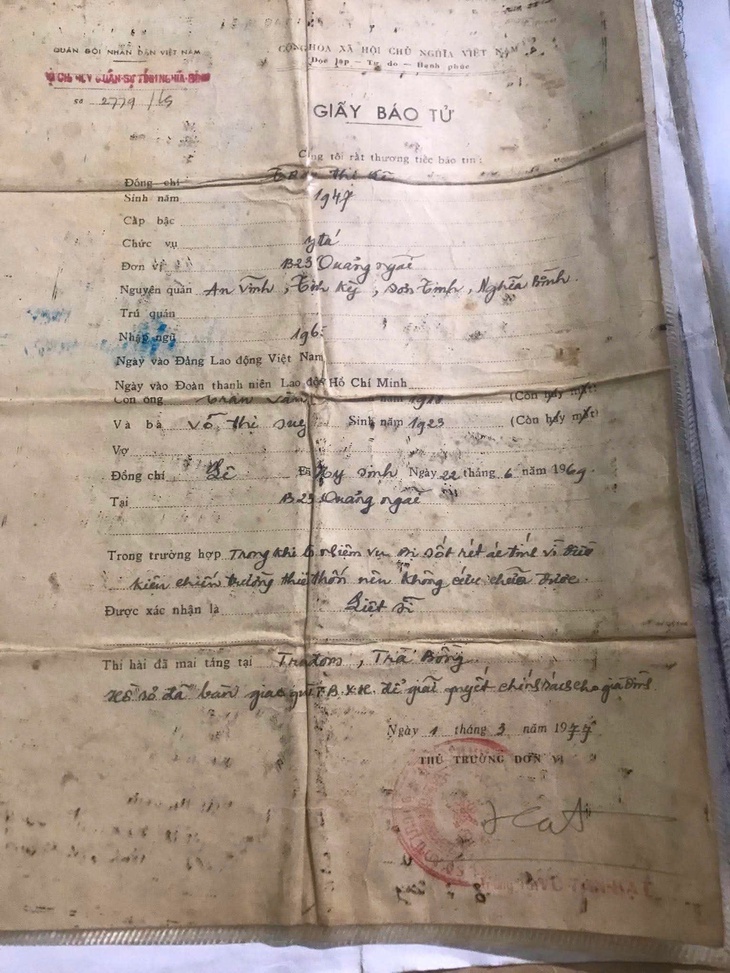 QUÂN ĐỘI NHÂN DÂN VIỆT NAM
CỘNG HÒA XÃ HỘI CHỦ NGHĨA VIỆT NAM
Độc lập — Tự do — Hạnh phúc
BỘ CHỈ HUY QUÂN SỰ TỈNH NGHĨA BÌNH
Số 2779 /LS
GIẤY BÁO TỬ
Chúng tôi rất thương tiếc báo tin:
Đồng chí Trần Thị
Sinh năm 1947
Cấp bậc
Chức vụ y tá
Đơn vị B23 Quảng ngãi
Nguyên quán An Vĩnh, Tịnh Kỳ, Sơn Tịnh, Nghĩa Bình.
Trú quán
Nhập ngũ 196
Ngày vào Đảng Lao động Việt Nam
Ngày vào Đoàn thanh niên Lao động Hồ Chí Minh
Con ông Trần Văn năm 1910 (Còn hay mất)
Và bà Võ thị Sinh năm 1923 (Còn hay mất)
Vợ
Đồng chí Đã Hy sinh Ngày 22 tháng 6 năm 1969.
Tại B23 Quảng ngãi
Trong trường hợp Trong khi nhiệm vụ bị sốt rét ác tính vì điều
kiện chiến trường thiếu thốn nên không cứu chữa được.
Được xác nhận là Liệt sĩ
Thi hài đã mai táng tại Trà Bồng
Hồ sơ đã bàn giao T.B.X.H. để giải quyết chính sách cho gia đình
Ngày 1 tháng 3 năm 1977
THỦ TRƯỞNG ĐƠN VỊ